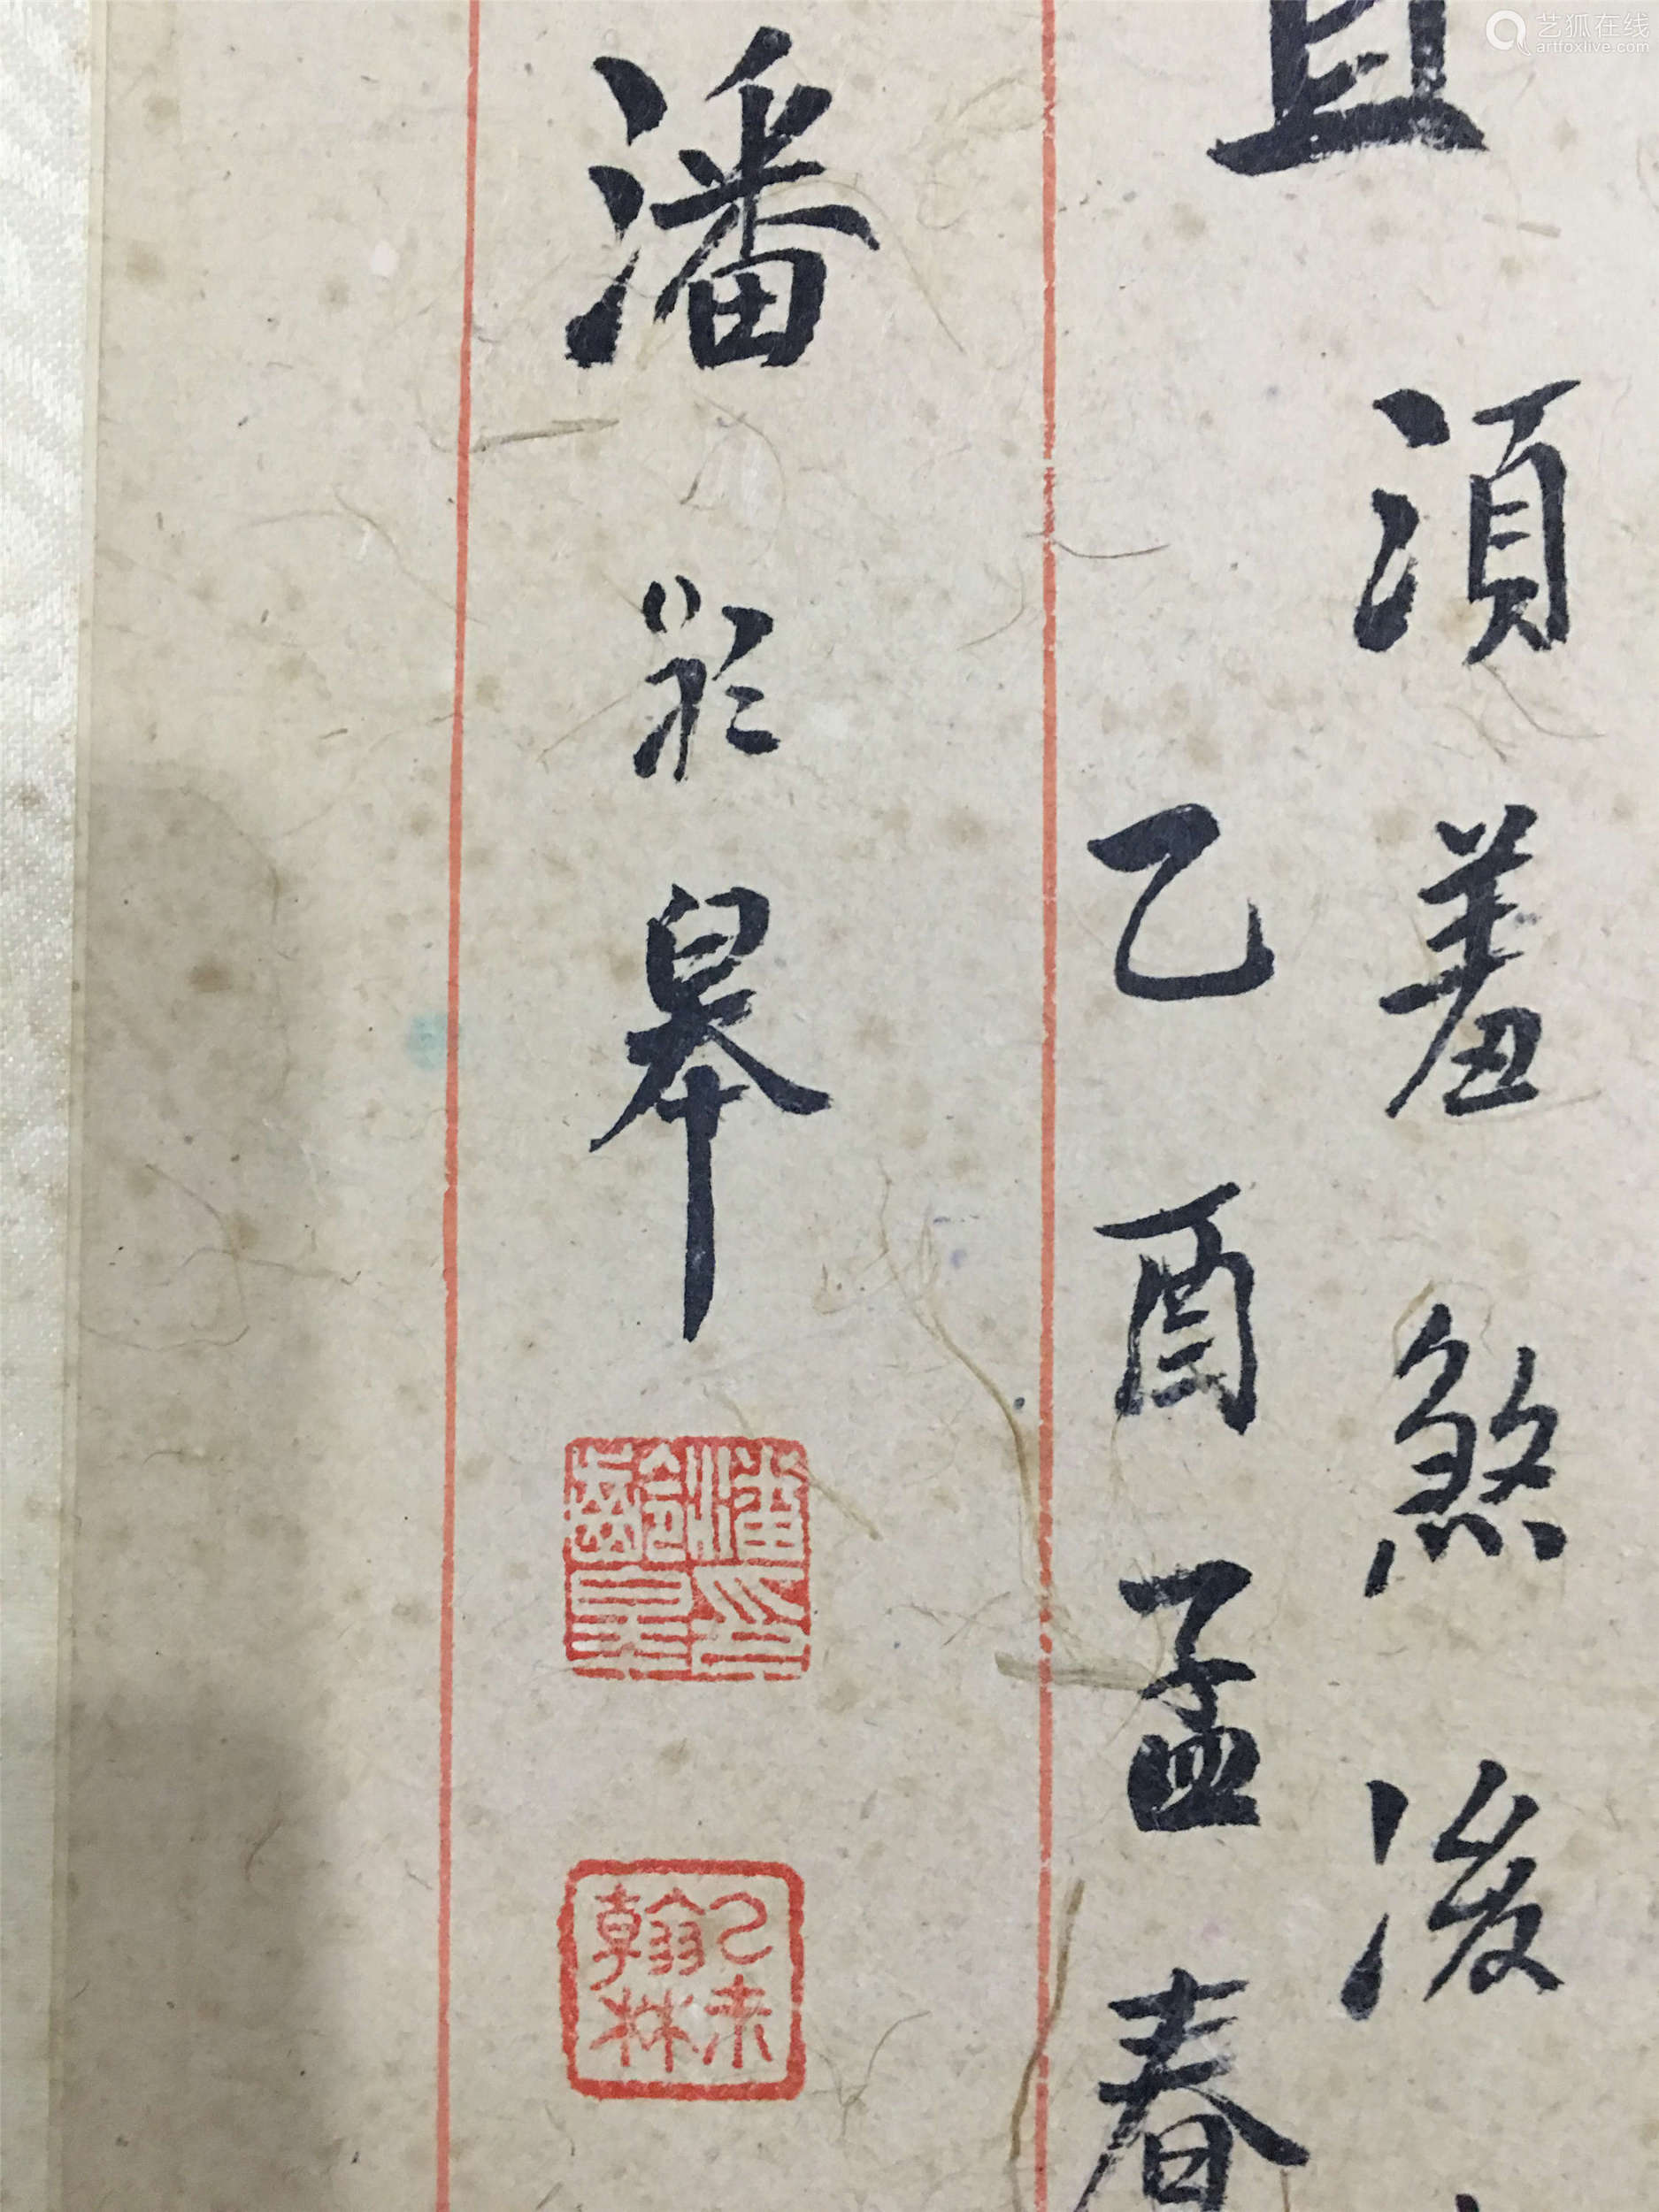 艺狐在线
artfoxlive.com
須羞煞後
乙酉孟春
潘齡皋
潘齡皋印
乙未翰林